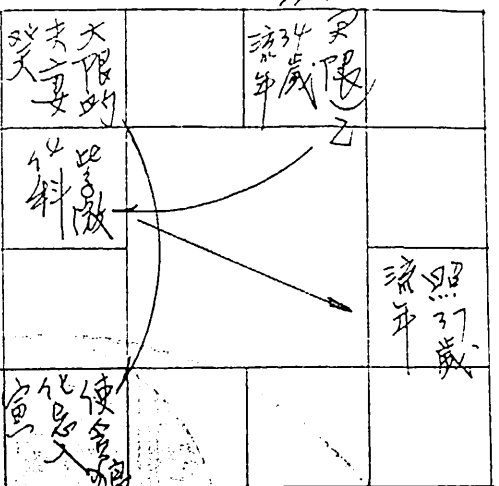 大限的
夫妻
癸
大限
34歲
流年
乙
紫微
化科
照37歲
流年
使貪狼
化忌入
寅